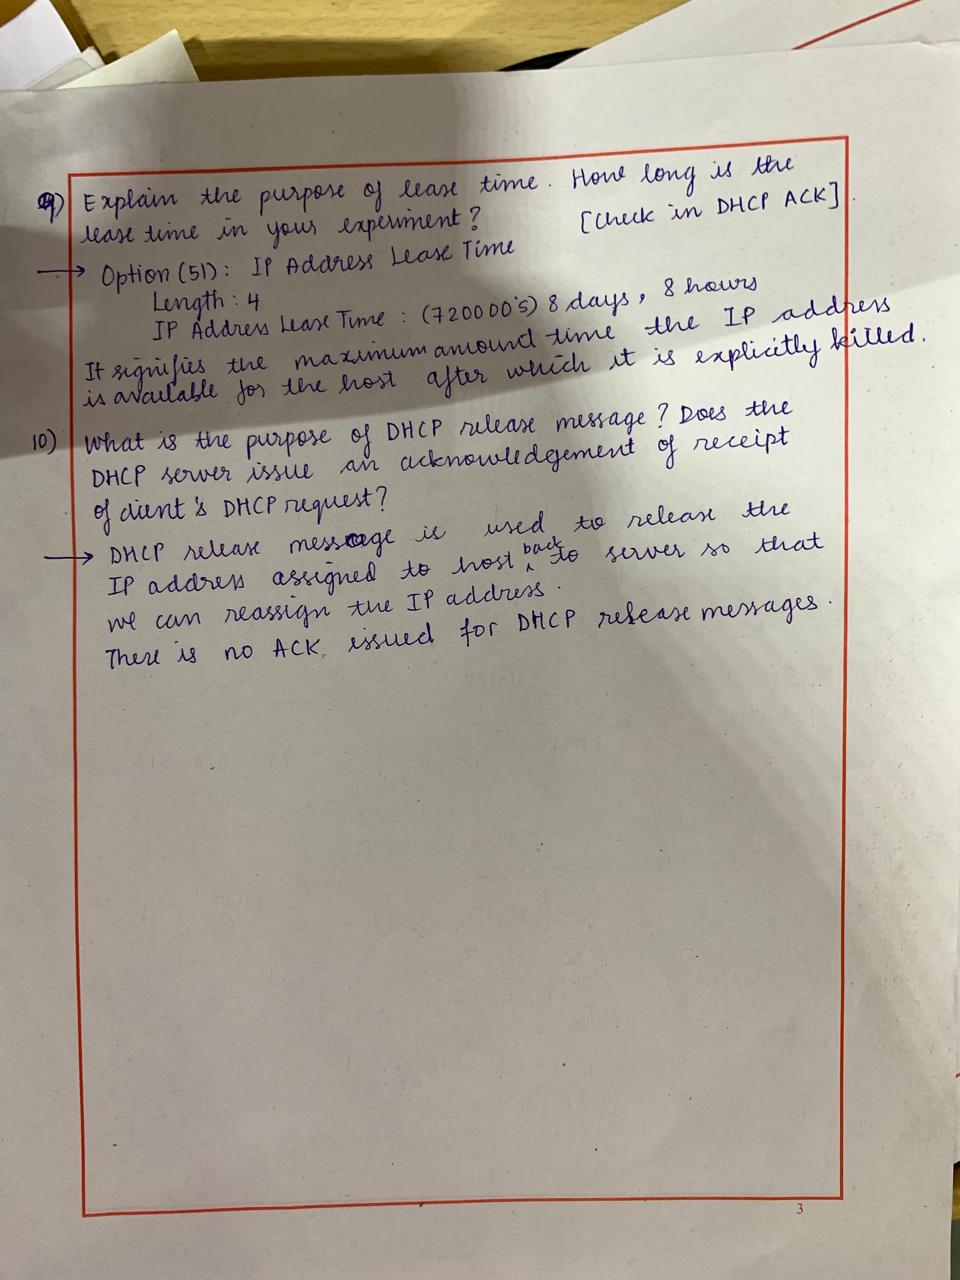 9) Explain the purpose of lease time. How long is the
lease time in your experiment? [Check in DHCP ACK].
→ Option (51): IP Address Lease Time
Length : 4
IP Address Lease Time : (720000's) 8 days, 8 hours
It signifies the maximum amound time the IP address
is available for the host after which it is explicitly killed.
10) What is the purpose of DHCP release message? Does the
DHCP server issue an acknowledgement of receipt
of client's DHCP request?
→ DHCP release message is used to release the
IP address assigned to host back to server so that
we can reassign the IP address.
There is no ACK. issued for DHCP release messages.
3